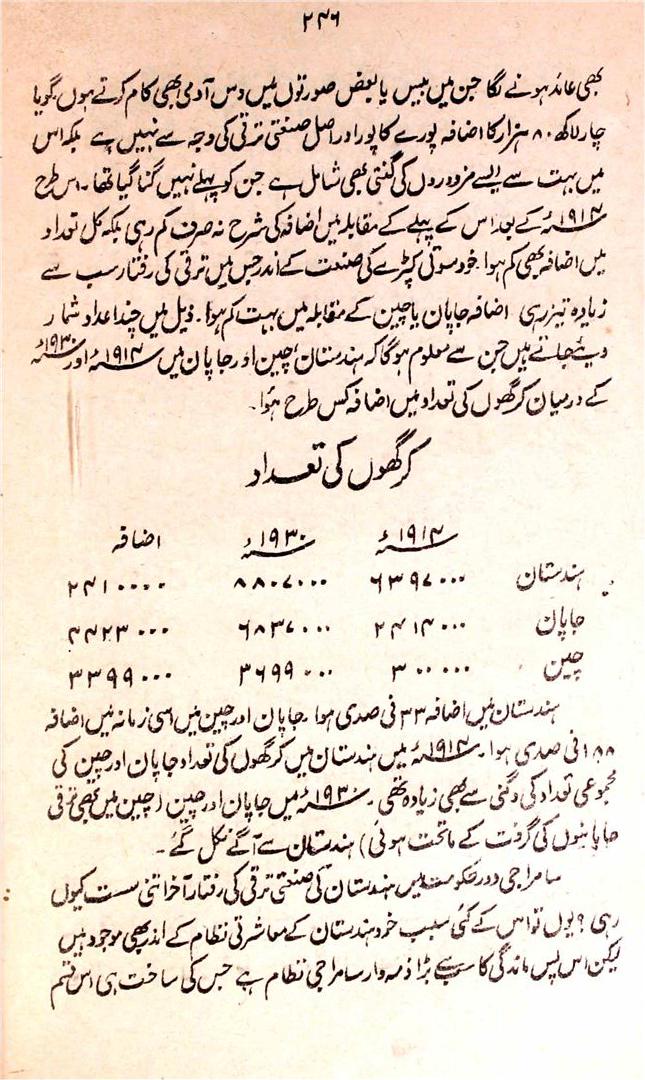 ۲۴۶
بھی عائد ہونے لگا جن میں بیس یا بعض صورتوں میں دس آدمی بھی کام کرتے ہوں۔ گویا
چار لاکھ ۸۰ ہزار کا اضافہ پورے کا پورا دراصل صنعتی ترقی کی وجہ سے نہیں ہے بلکہ اس
میں بہت سے ایسے مزدوروں کی گنتی بھی شامل ہے جن کو پہلے نہیں گنا گیا تھا۔ اس طرح
۱۹۱۴ء کے بعد اس کے پہلے کے مقابلہ میں اضافہ کی شرح نہ صرف کم رہی بلکہ کل تعداد
میں اضافہ بھی کم ہوا۔ خود سوتی کپڑے کی صنعت کے اندر جس میں ترقی کی رفتار سب سے
زیادہ تیز رہی اضافہ جاپان یا چین کے مقابلہ میں بہت کم ہوا۔ ذیل میں چند اعداد شمار
دیئے جاتے ہیں جن سے معلوم ہوگا کہ ہندستان، چین اور جاپان میں ۱۹۱۴ء اور ۱۹۳۰ء
کے درمیان کرگھوں کی تعداد میں اضافہ کس طرح ہوا۔
کرگھوں کی تعداد
۱۹۱۴ء ۱۹۳۰ء اضافہ
ہندستان ۶۳۹۷۰۰۰ ۸۸۰۷۰۰۰ ۲۴۱۰۰۰۰
جاپان ۲۴۱۴۰۰۰ ۶۸۳۷۰۰۰ ۴۴۲۳۰۰۰
چین ۳۰۰۰۰۰ ۳۶۹۹۰۰۰ ۳۳۹۹۰۰۰
ہندستان میں اضافہ ۳۳ فی صدی ہوا۔ جاپان اور چین میں اسی زمانہ میں اضافہ
۱۸۸ فی صدی ہوا۔ ۱۹۱۴ء میں ہندستان میں کرگھوں کی تعداد جاپان اور چین کی
مجموعی تعداد کی دگنی سے بھی زیادہ تھی۔ ۱۹۳۰ء میں جاپان اور چین (چین میں بھی ترقی
جاپانیوں کی گرفت کے ماتحت ہوئی) ہندستان سے آگے نکل گئے۔
سامراجی دور حکومت میں ہندستان کی صنعتی ترقی کی رفتار آخر اتنی سست کیوں
رہی؟ یوں تو اس کے کئی سبب خود ہندستان کے معاشرتی نظام کے اندر بھی موجود ہیں
لیکن اس پس ماندگی کا سب سے بڑا ذمہ وار سامراجی نظام ہے جس کی ساخت ہی اس قسم